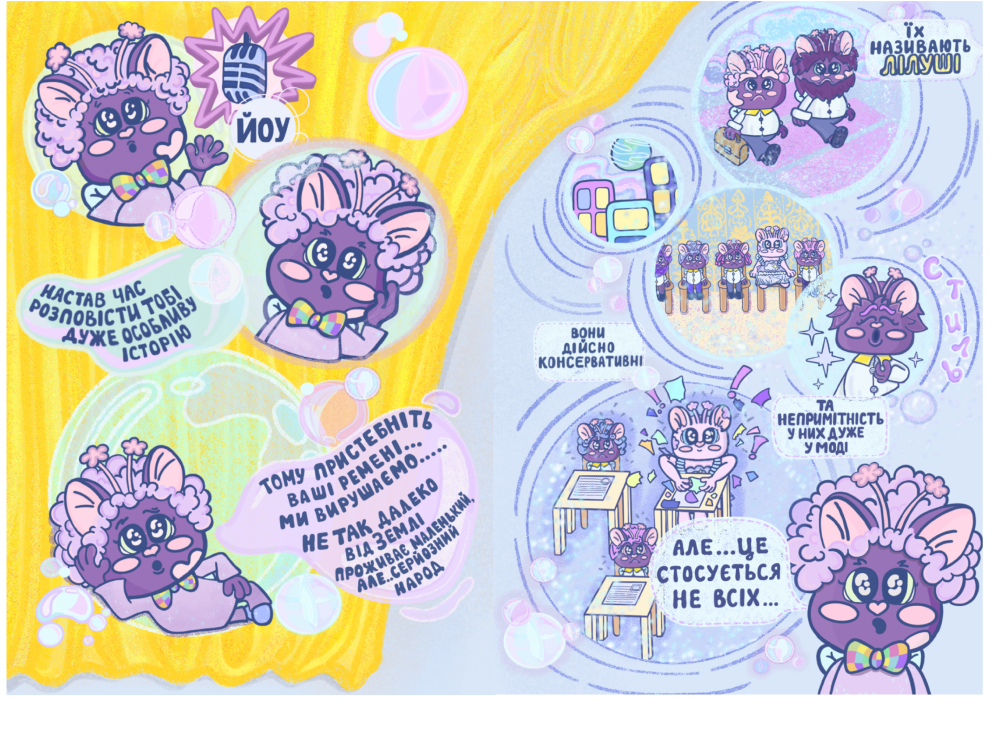 ЙОУ
НАСТАВ ЧАС
РОЗПОВІСТИ ТОБІ
ДУЖЕ ОСОБЛИВУ
ІСТОРІЮ
ТОМУ ПРИСТЕБНІТЬ
ВАШІ РЕМЕНІ...
МИ ВИРУШАЄМО.....
НЕ ТАК ДАЛЕКО
ВІД ЗЕМЛІ
ПРОЖИВАЄ МАЛЕНЬКИЙ,
АЛЕ..СЕРЙОЗНИЙ
НАРОД
ЇХ
НАЗИВАЮТЬ
ЛІЛУШІ
СТИЛЬ
ВОНИ
ДІЙСНО
КОНСЕРВАТИВНІ
ТА
НЕПРИМІТНІСТЬ
У НИХ ДУЖЕ
У МОДІ
АЛЕ...ЦЕ
СТОСУЄТЬСЯ
НЕ ВСІХ...